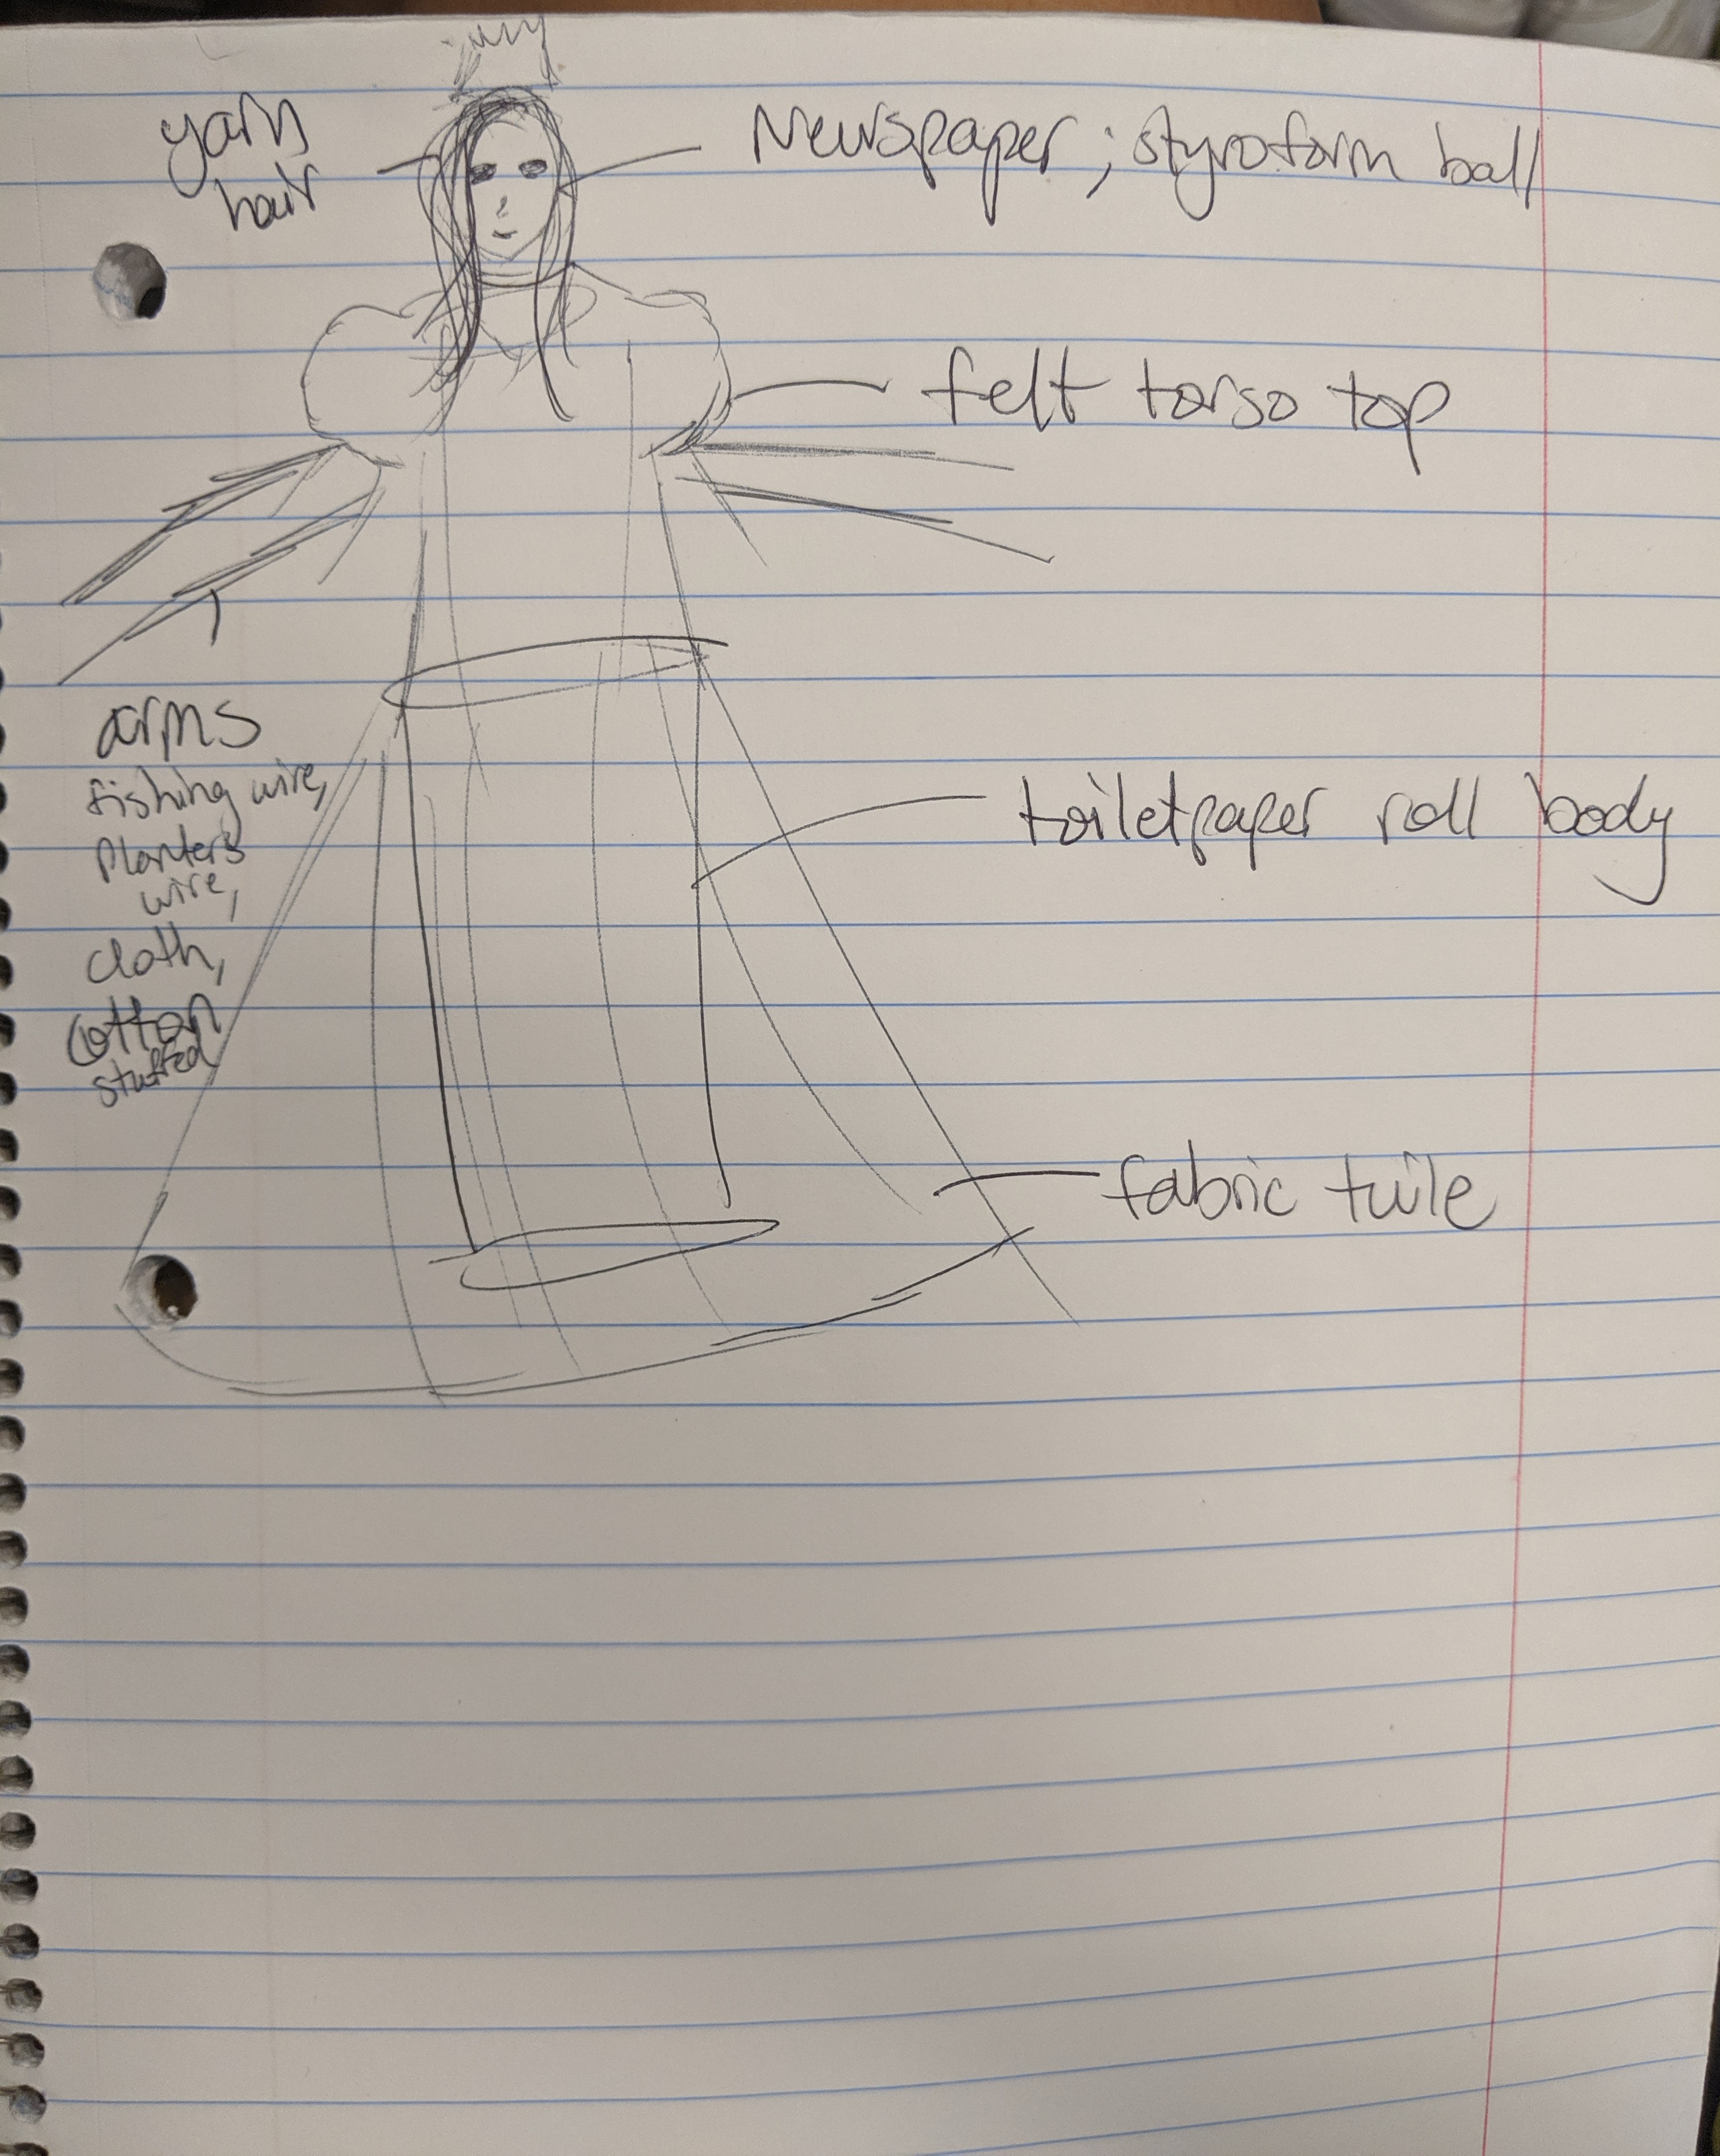 yarn
hair
Newspaper; styrofoam ball
felt torso top
arms
fishing wire,
Planters
wire,
cloth,
cotton
stuffed
toiletpaper roll body
fabric tulle